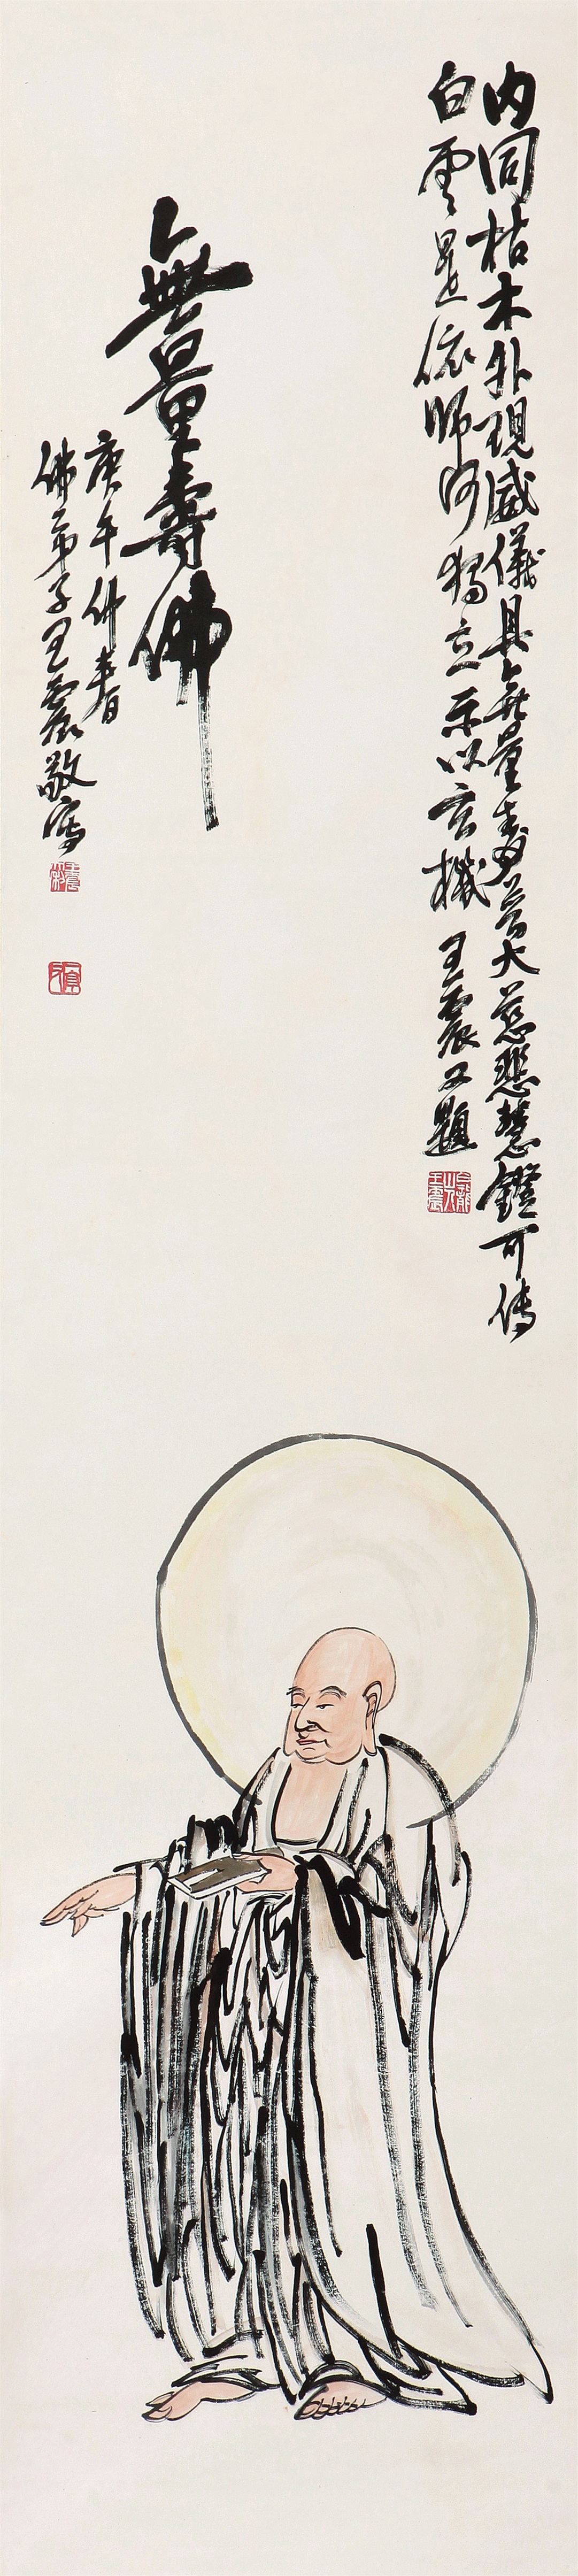 内同枯木外現威儀具無量壽普大慈悲慧鐙可傳
白雲是依師何獨立示以玄機 王震又題
無量壽佛
庚午仲春
佛弟子王震敬寫